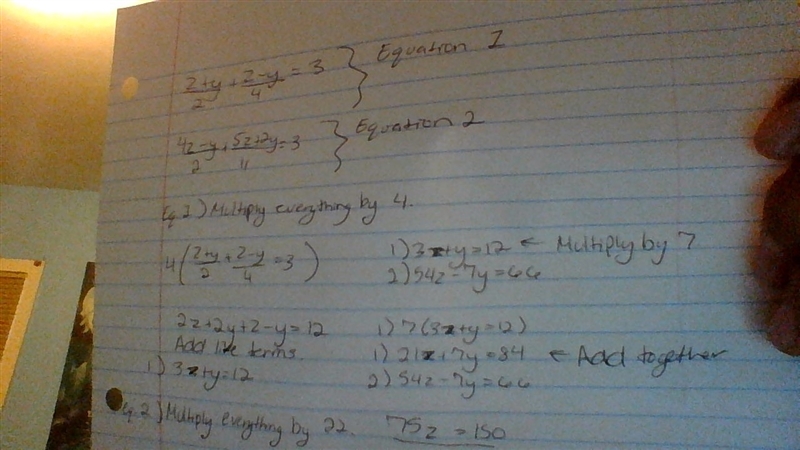 z+y/2 + z-y/4 = 3 } Equation 1
4z-y/2 + 5z+2y/4 = 3 } Equation 2
Eq. 1) Multiply everything by 4.
4(z+y/2 + z-y/4 = 3)
2z+2y+z-y=12
Add like terms.
1) 3z+y=12
Eq. 2) Multiply everything by 22.
1) 3z+y=12 ← Multiply by 7
2) 54z-7y=66
1) 7(3z+y=12)
1) 21z+7y=84 ← Add together
2) 54z-7y=66
75z =150